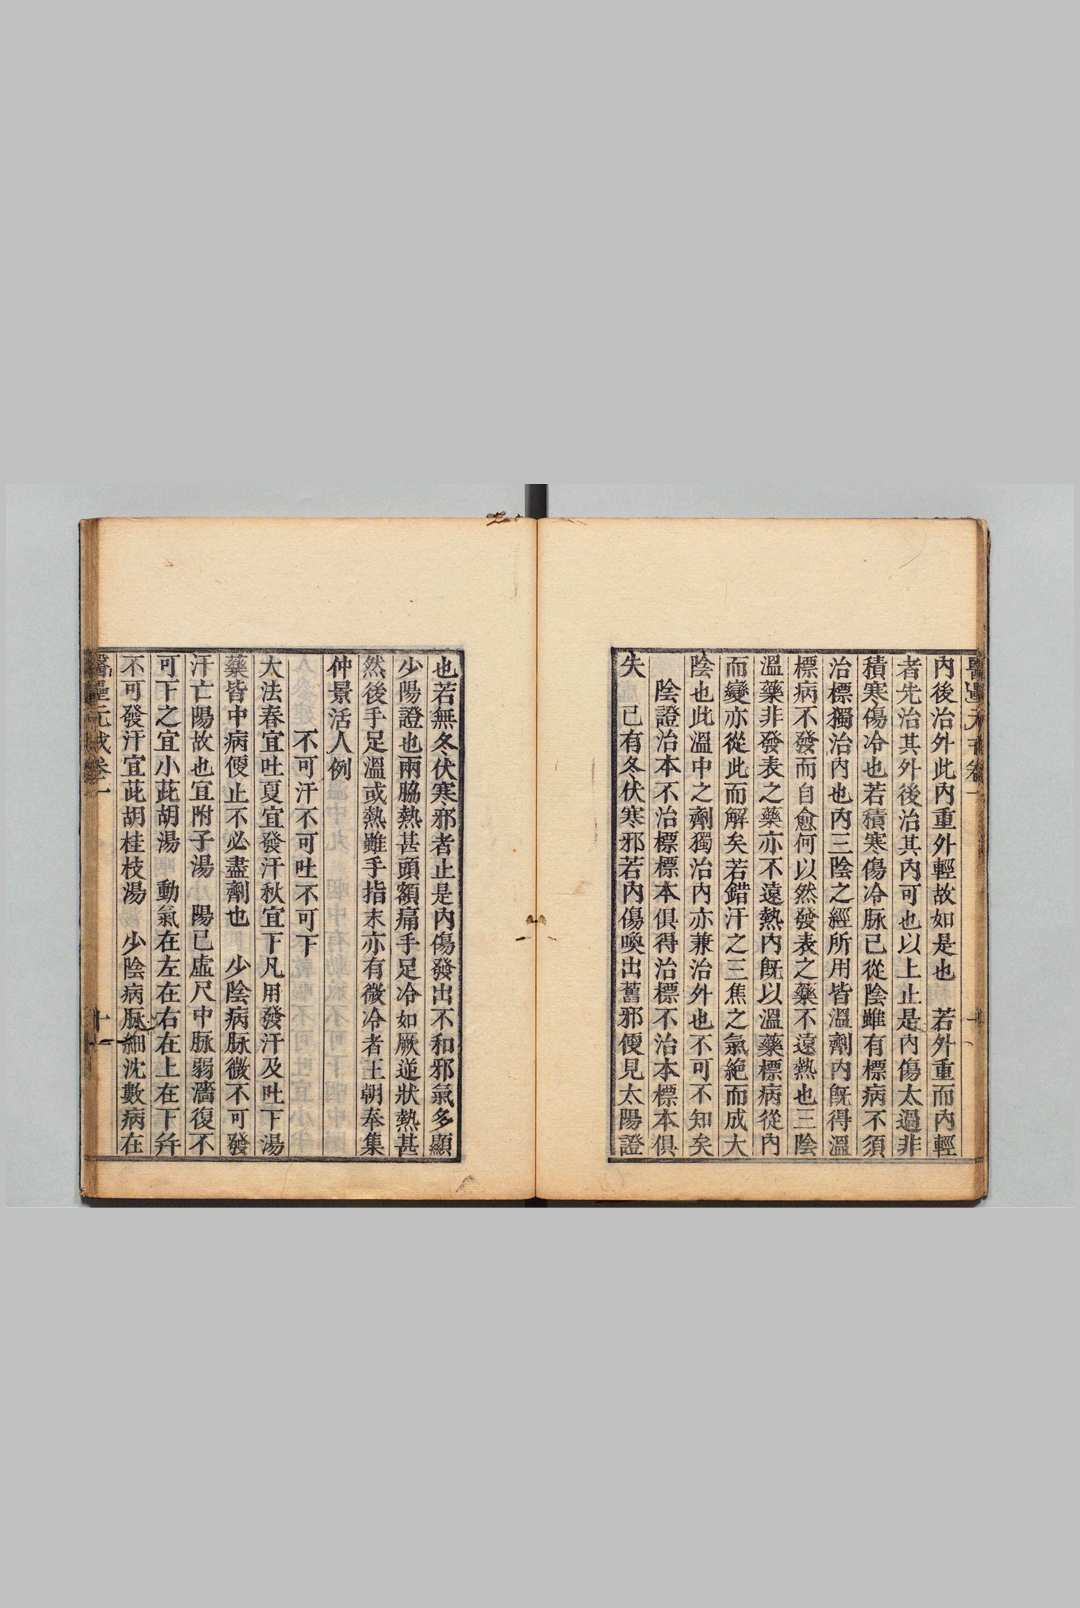 內後治外此內重外輕故如是也　若外重而內輕
者先治其外後治其內可也以上止是內傷太過非
積寒傷冷也若積寒傷冷脉已從陰雖有標病不須
治標獨治內也內三陰之經所用皆溫劑內旣得溫
標病不發而自愈何以然發表之藥不遠熱也三陰
溫藥非發表之藥亦不遠熱內旣以溫藥標病從內
而變亦從此而解矣若錯汗之三焦之氣絶而成大
陰也此溫中之劑獨治內亦兼治外也不可不知矣
陰證治本不治標標本俱得治標不治本標本俱
失　已有冬伏寒邪若內傷喚出舊邪便見太陽證
也若無冬伏寒邪者止是內傷發出不和邪氣多顯
少陽證也兩脇熱甚頭額痛手足冷如厥逆狀熱甚
然後手足溫或熱雖手指末亦有微冷者王朝奉集
仲景活人例
不可汗不可吐不可下
大法春宜吐夏宜發汗秋宜下凡用發汗及吐下湯
藥皆中病便止不必盡劑也　少陰病脉微不可發
汗亡陽故也宜附子湯　陽已虛尺中脉弱濇復不
可下之宜小茈胡湯　動氣在左在右在上在下幷
不可發汗宜茈胡桂枝湯　少陰病脉細沈數病在
醫壘元戎卷一
十一